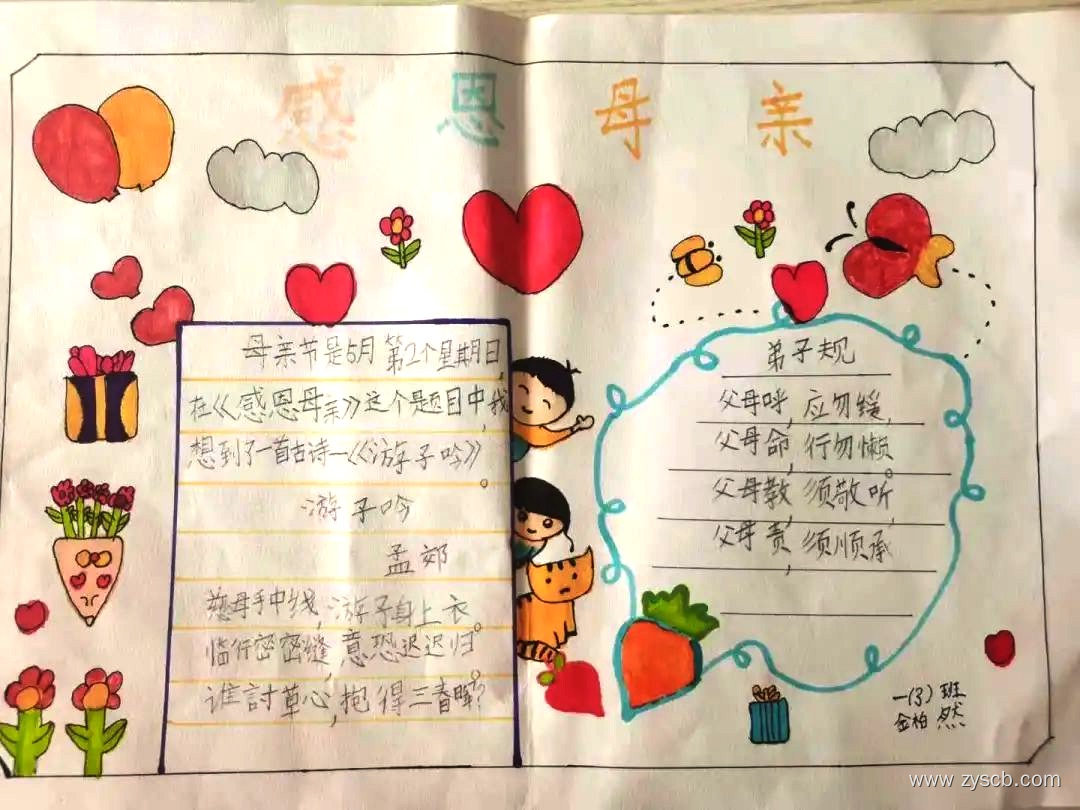 感恩母亲
母亲节是5月第2个星期日,
在《感恩母亲》这个题目中,我
想到了一首古诗—《游子吟》。
游子吟
孟郊
慈母手中线,游子身上衣。
临行密密缝,意恐迟迟归。
谁討草心,抱得三春晖?
弟子规
父母呼,应勿缓,
父母命,行勿懒。
父母教,须敬听,
父母责,须顺承
一(3)班
金柏然
www.zyscb.com